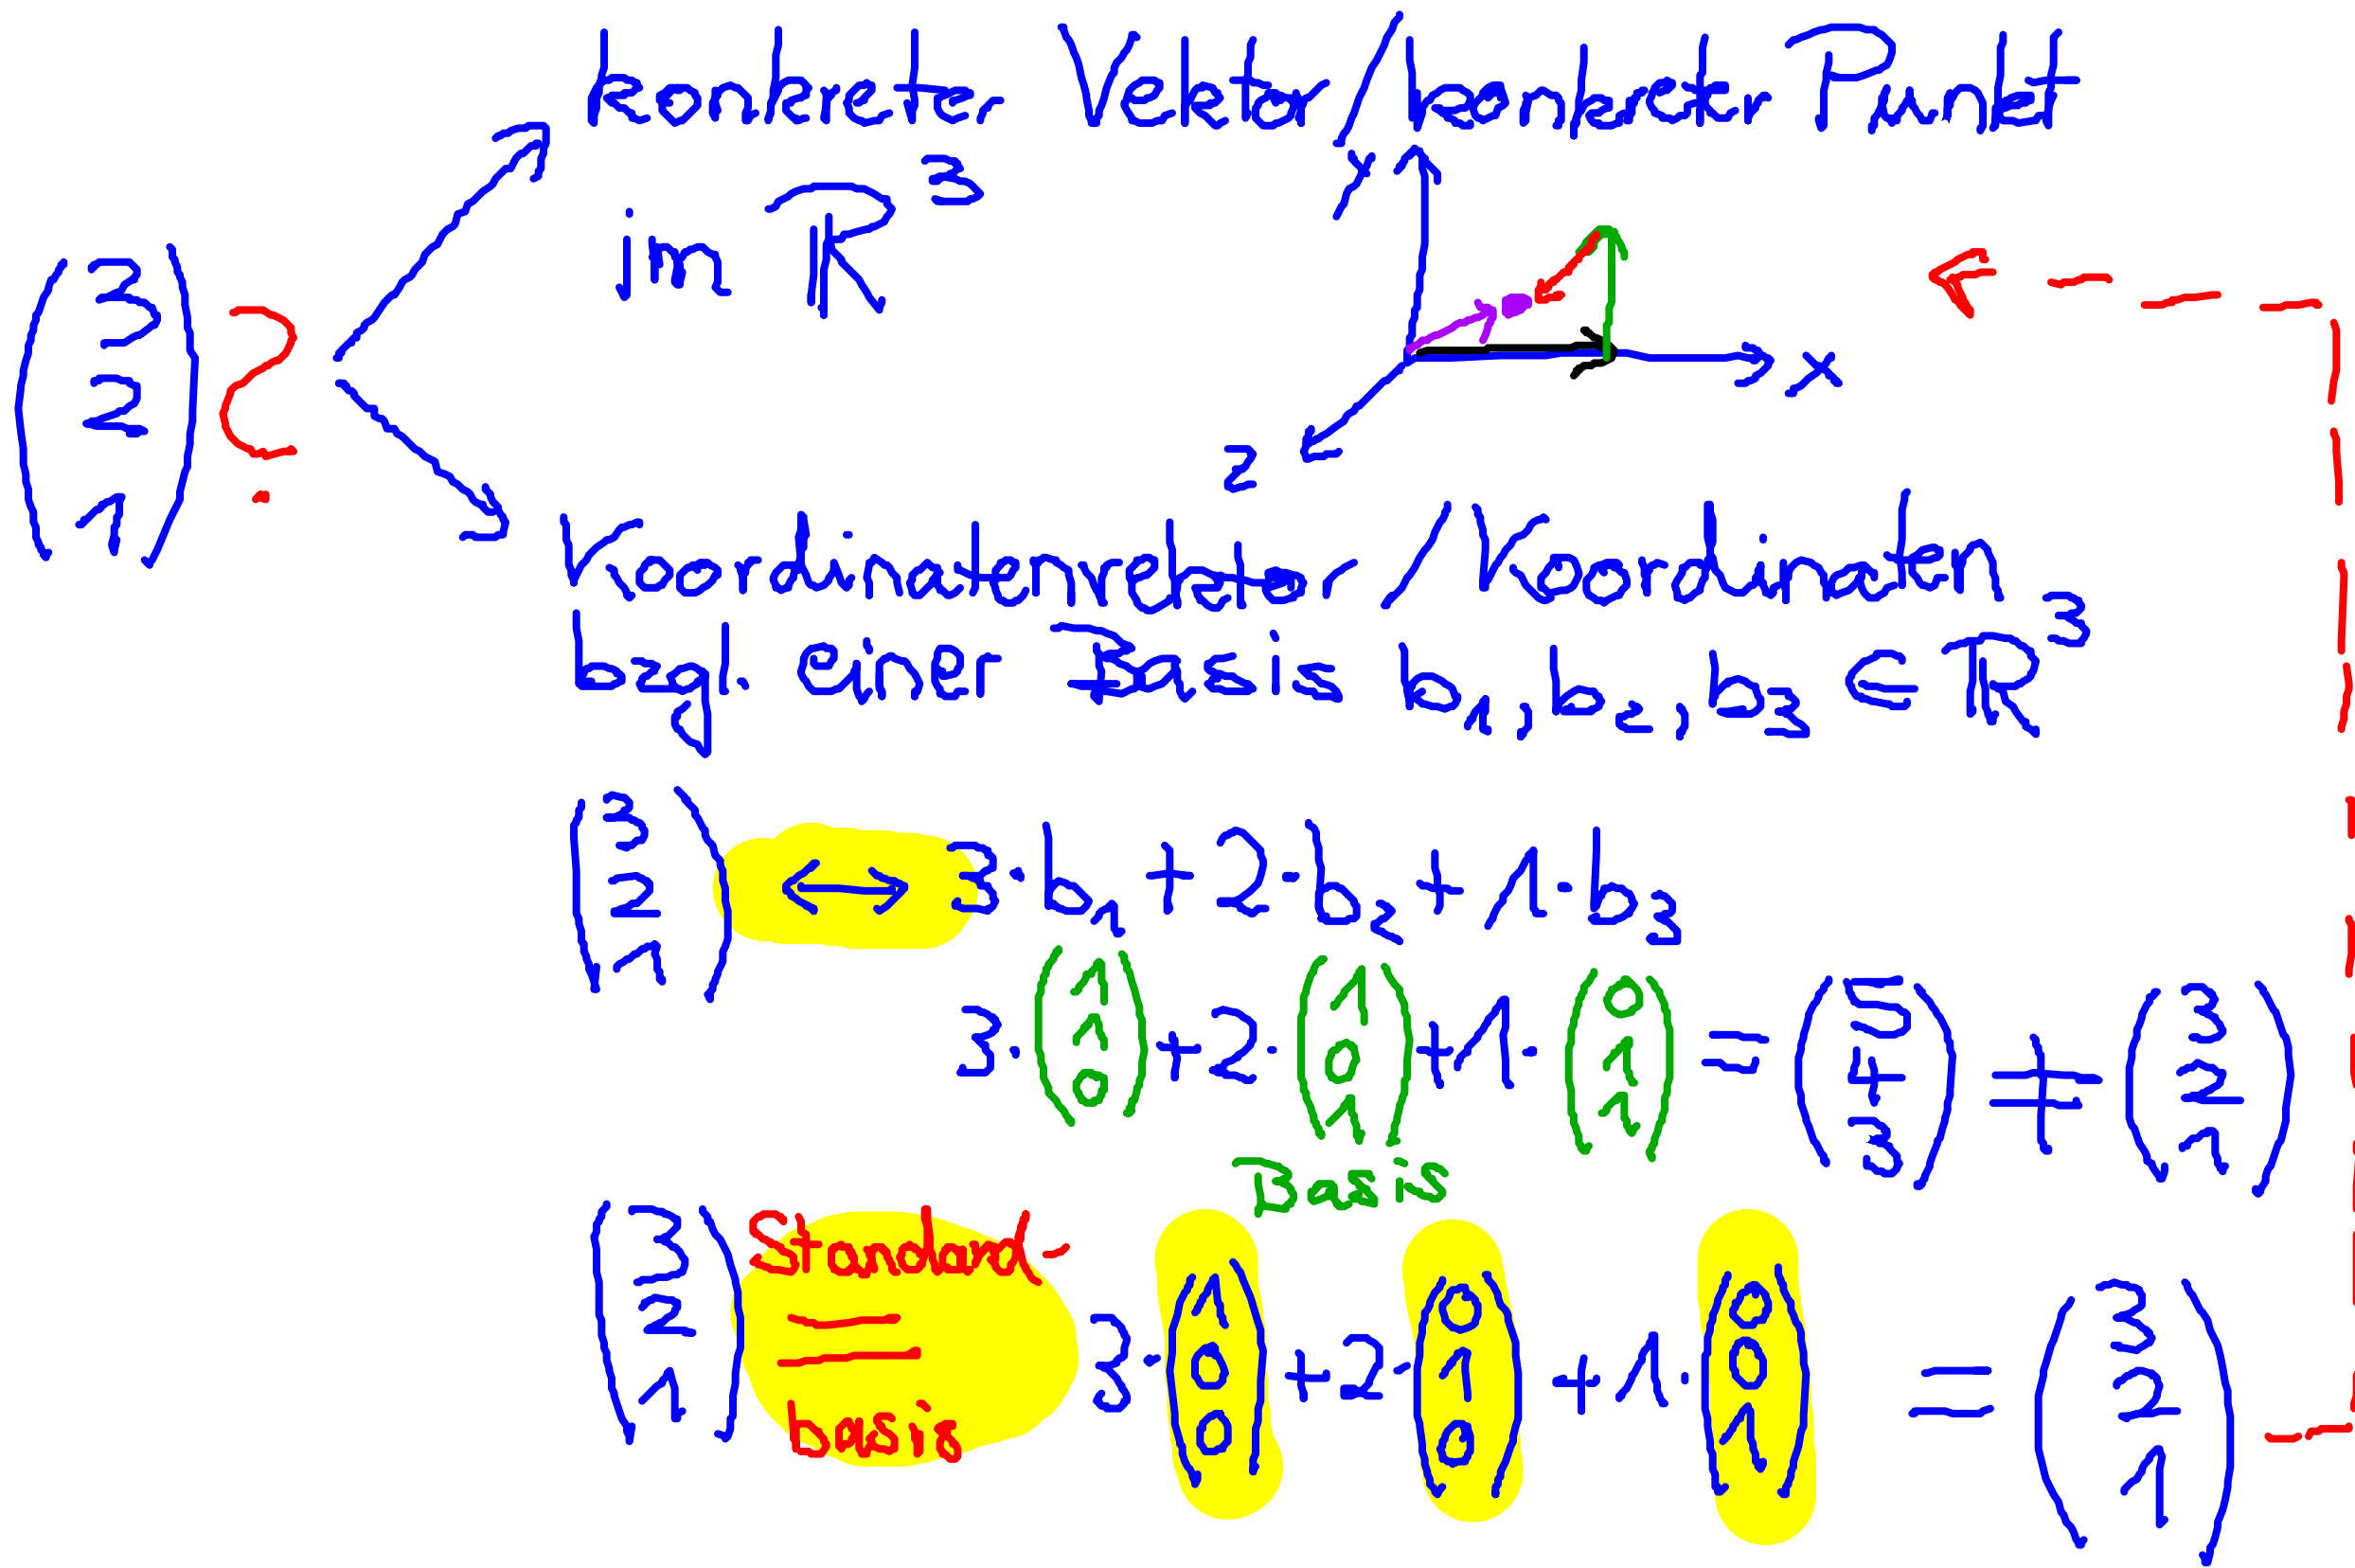 besonderer Vektor / konkreter Punkt
in ℝ³
(3 2 1) ?
y
x
z
Koordinaten / Koordinaten
bzgl. einer Basis b₁, b₂, b₃ ∈ ℝ³
(3 2 1) ⟷ 3·b₁ + 2·b₂ + 1·b₃
3·(1 1 0) + 2·(1 0 1) + 1·(0 1 1) = (5 4 3) ≠ (3 2 1)
Basis
(3 2 1) Standard = basis 3·(1 0 0) + 2·(0 1 0) + 1·(0 0 1) = (3 2 1)